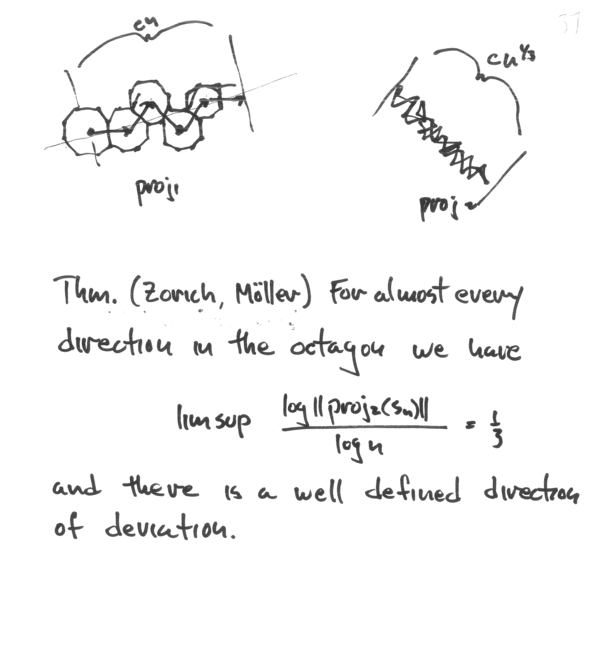 37
cn
cn^1/3
proj1
proj 2
Thm. (Zorich, Möller) For almost every
direction in the octagon we have
lim sup log ||proj2(Sn)|| / log n = 1/3
and there is a well defined direction
of deviation.